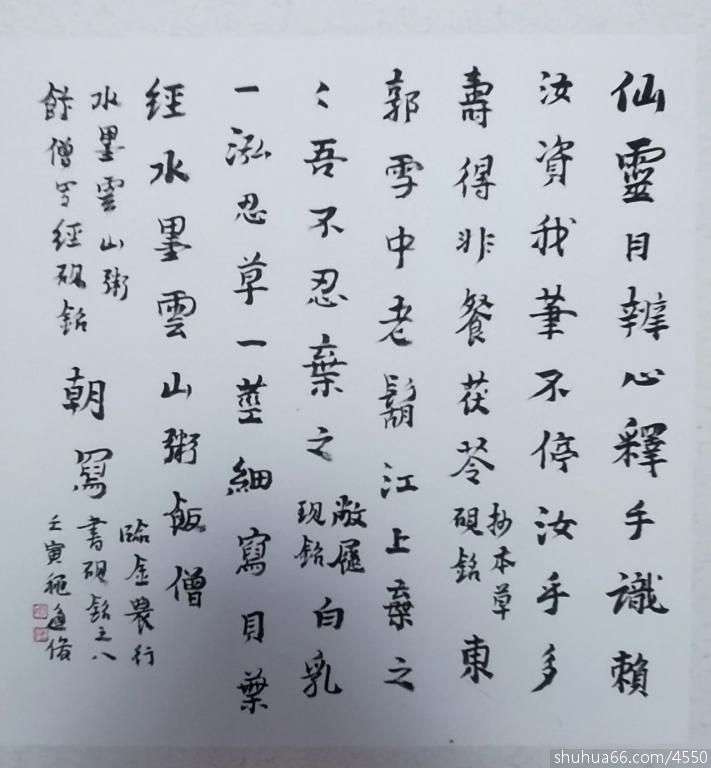 仙靈目辨心釋手識賴
汝資我筆不停汝乎多
壽得非餐茯苓
抄本草
硯銘
東
郭雪中老鬍江上棄之
〻吾不忍棄之
敝履
硯銘
白乳
一泓忍草一莖細寫貝葉
經水墨雲山粥飯僧
水墨雲山粥
飯僧写經硯銘
朝寫
臨金農行
書硯銘之八
壬寅穐
shuhua66.com/4550